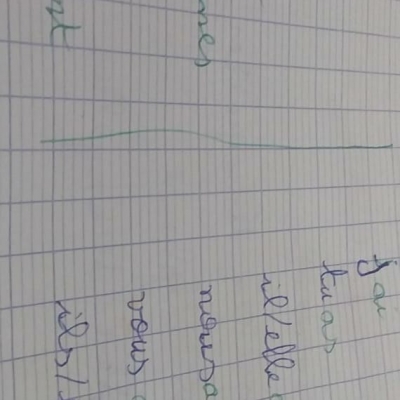 mes
nt
j'ai
tu as
il/elle
nous a
vous
ils/